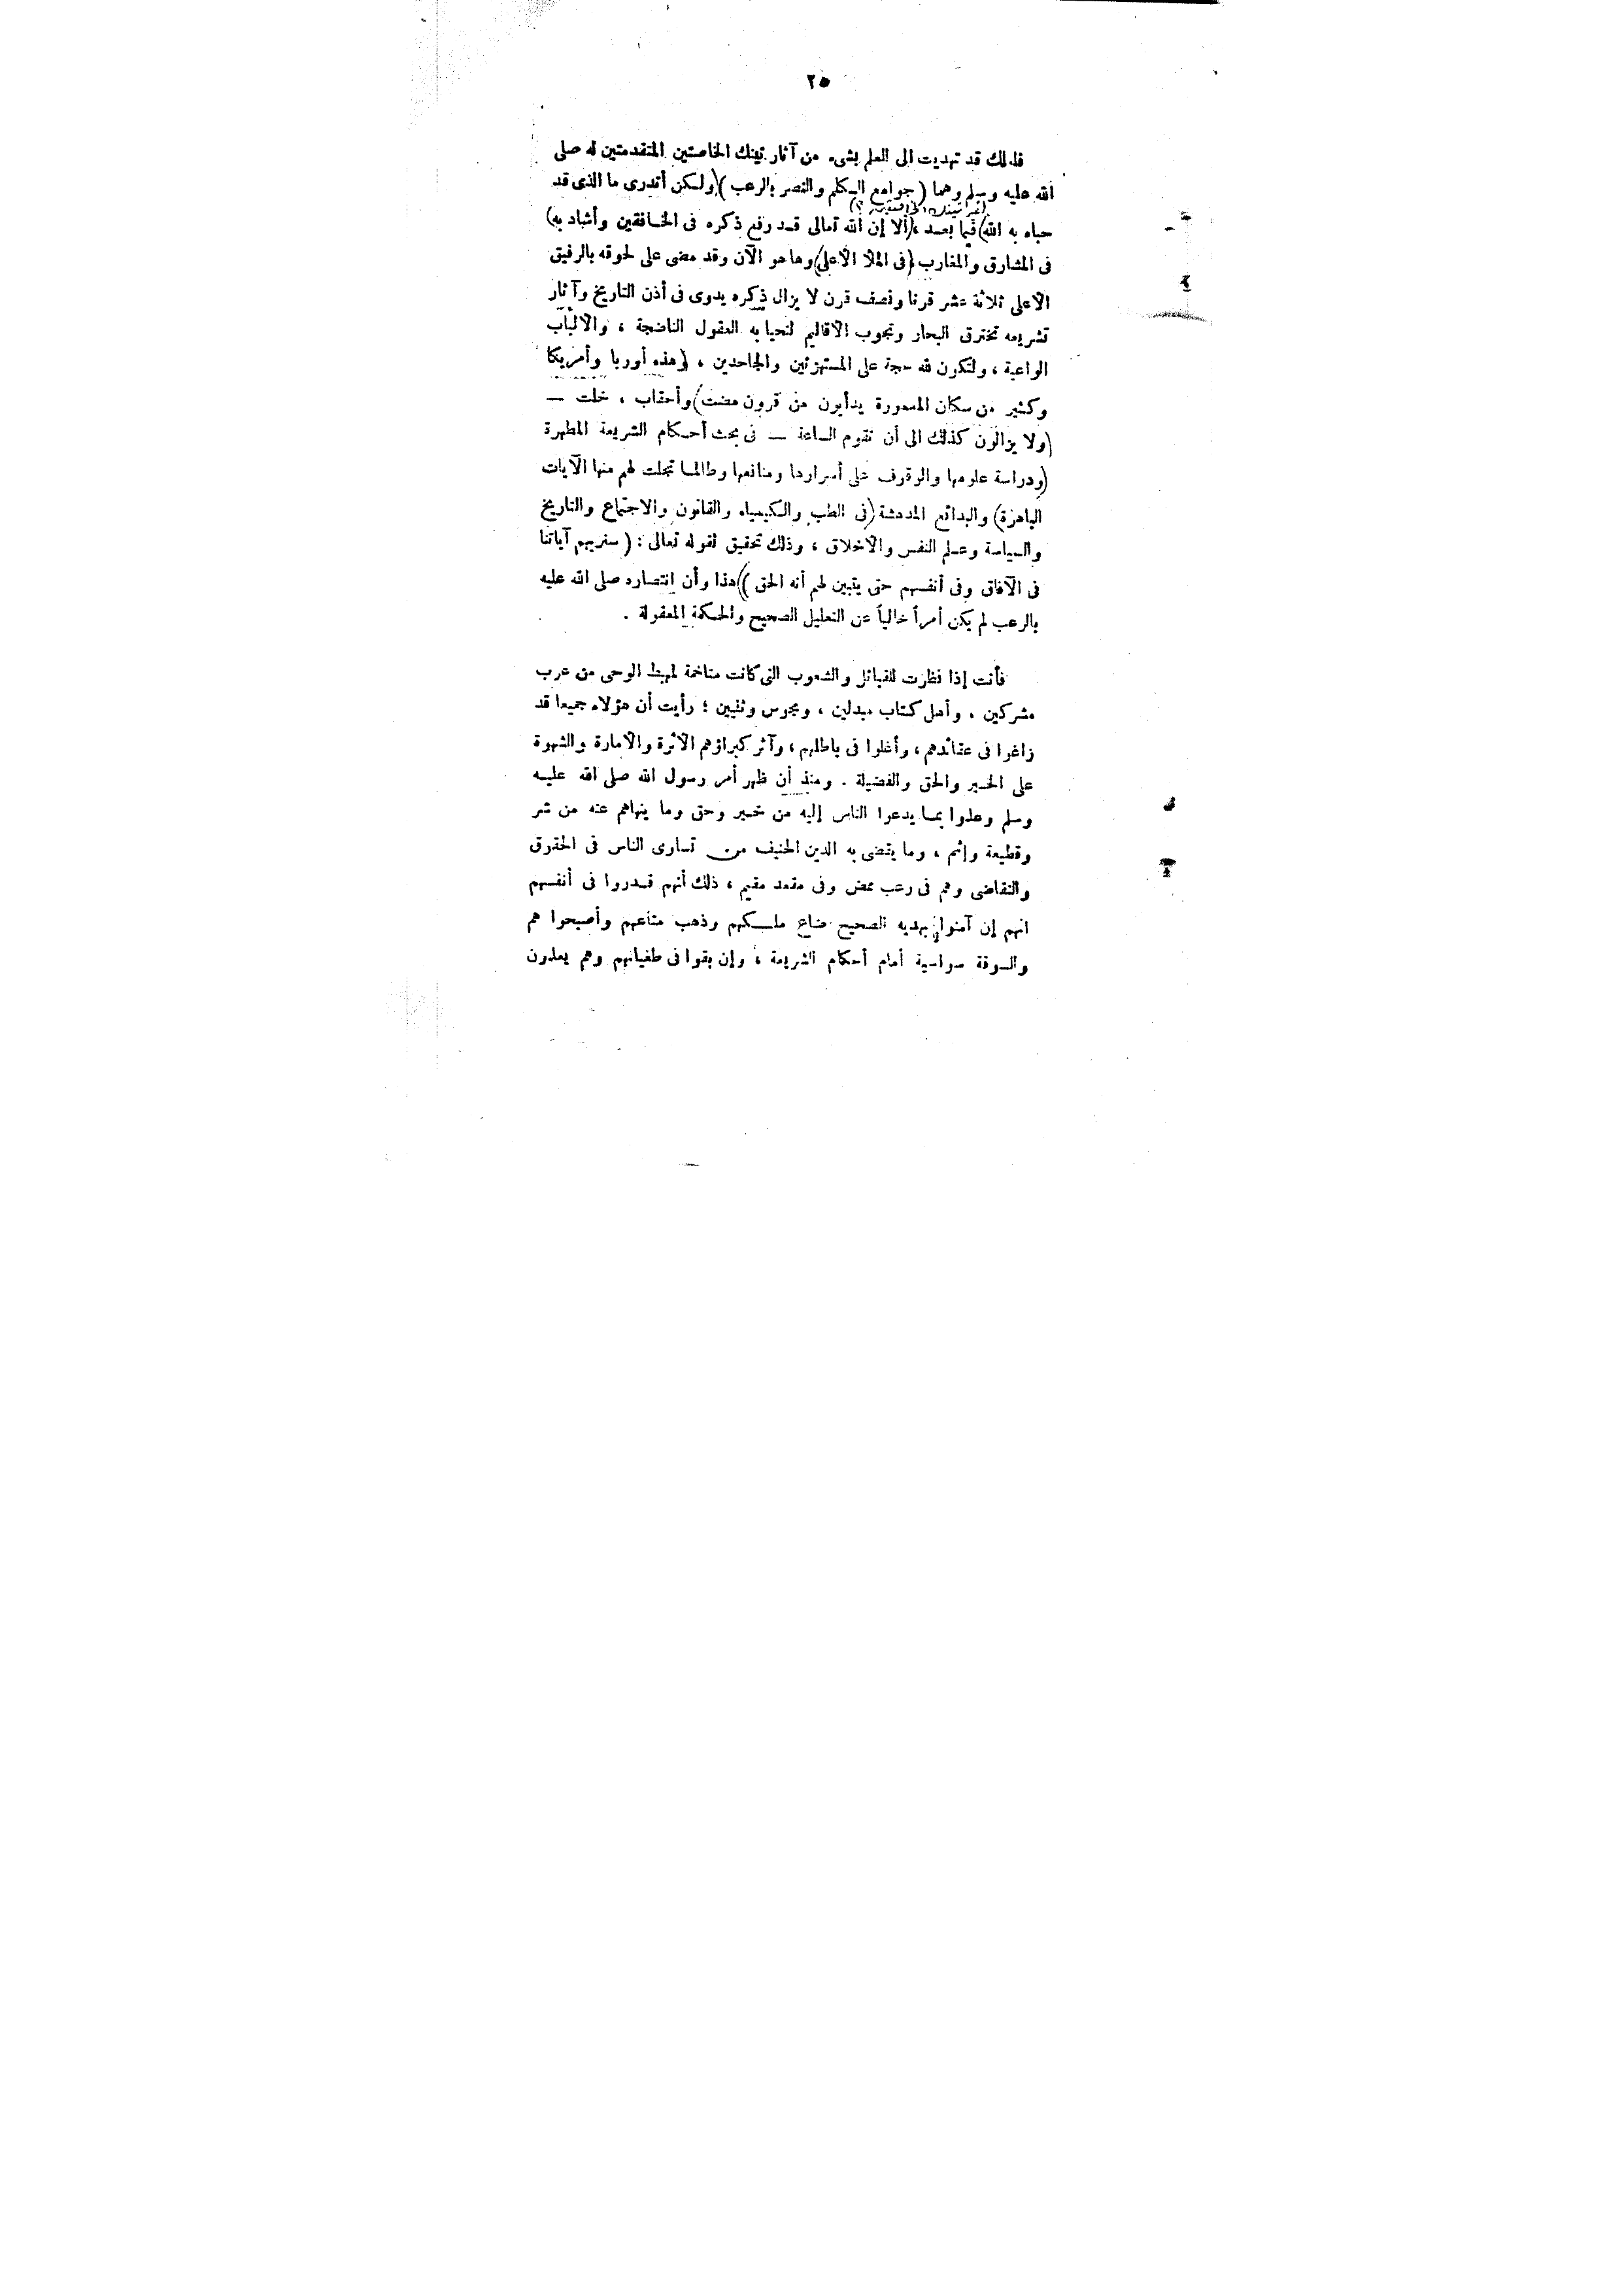 ٢٥
فلعلك قد تهديت الى العلم بشىء من آثار تينك الخاصتين المتقدمتين له صلى
الله عليه وسلم وهما ( جوامع الكلم والنصر بالرعب ) ولكن أتدرى ما الذى قد
(غير تينك الخاصتين ؟)
حباه به الله) فيما بعد ، (ألا إن الله تعالى قد رفع ذكره فى الخافقين وأشاد به)
فى المشارق والمغارب (فى الملا الاعلى) وها هو الآن وقد مضى على لحوقه بالرفيق
الاعلى ثلاثة عشر قرنا ونصف قرن لا يزال ذكره يدوى فى أذن التاريخ وآثار
تشريعه تخترق البحار وتجوب الاقاليم لتحيا به العقول الناضجة ، والالباب
الواعية ، ولتكون لله حجة على المستهزئين والجاحدين ، (وهذه أوربا وأمريكا
وكثير من سكان المعمورة يدأبون من قرون مضت) وأحقاب ، خلت —
(ولا يزالون كذلك الى أن تقوم الساعة — فى بحث أحكام الشريعة المطهرة
(ودراسة علومها والوقوف على أسرارها ومنافعها وطالما تجلت لهم منها الآيات
الباهرة) والبدائع المدهشة (فى الطب والكيمياء والقانون والاجتماع والتاريخ
والسياسة وعلم النفس والاخلاق ، وذلك تحقيق لقوله تعالى : ( سنريهم آياتنا
فى الآفاق وفى أنفسهم حتى يتبين لهم أنه الحق )) هذا وأن إنتصاره صلى الله عليه
بالرعب لم يكن أمراً خالياً عن التعليل الصحيح والحكمة المعقولة .
فأنت إذا نظرت للقبائل والشعوب التى كانت متاخمة لمهبط الوحى من عرب
مشركين ، وأهل كتاب مبدلين ، ومجوس وثنيين ؛ رأيت أن هؤلاء جميعا قد
زاغوا فى عقائدهم ، وأغلوا فى باطلهم ، وآثر كبراؤهم الاثرة والامارة والشهوة
على الخير والحق والفضيلة . ومنذ أن ظهر أمر رسول الله صلى الله عليه
وسلم وعلموا بما يدعوا الناس إليه من خير وحق وما ينهاهم عنه من شر
وقطيعة وإثم ، وما يقضى به الدين الحنيف من تساوى الناس فى الحقوق
والتقاضى وهم فى رعب ممض وفى مقعد مقيم ، ذلك أنهم قدروا فى أنفسهم
انهم إن آمنوا بهديه الصحيح ضاع ملكهم وذهب متاعهم وأصبحوا هم
والسوقة سواسية أمام أحكام الشريعة ، وإن بقوا فى طغيانهم وهم يعلمون